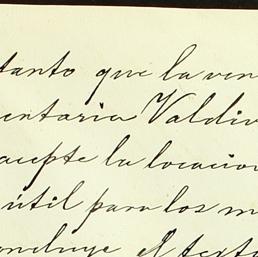 tanto que la ven
entaria Valdiv
acepte la locacion
útil para los m
oncluye el testa